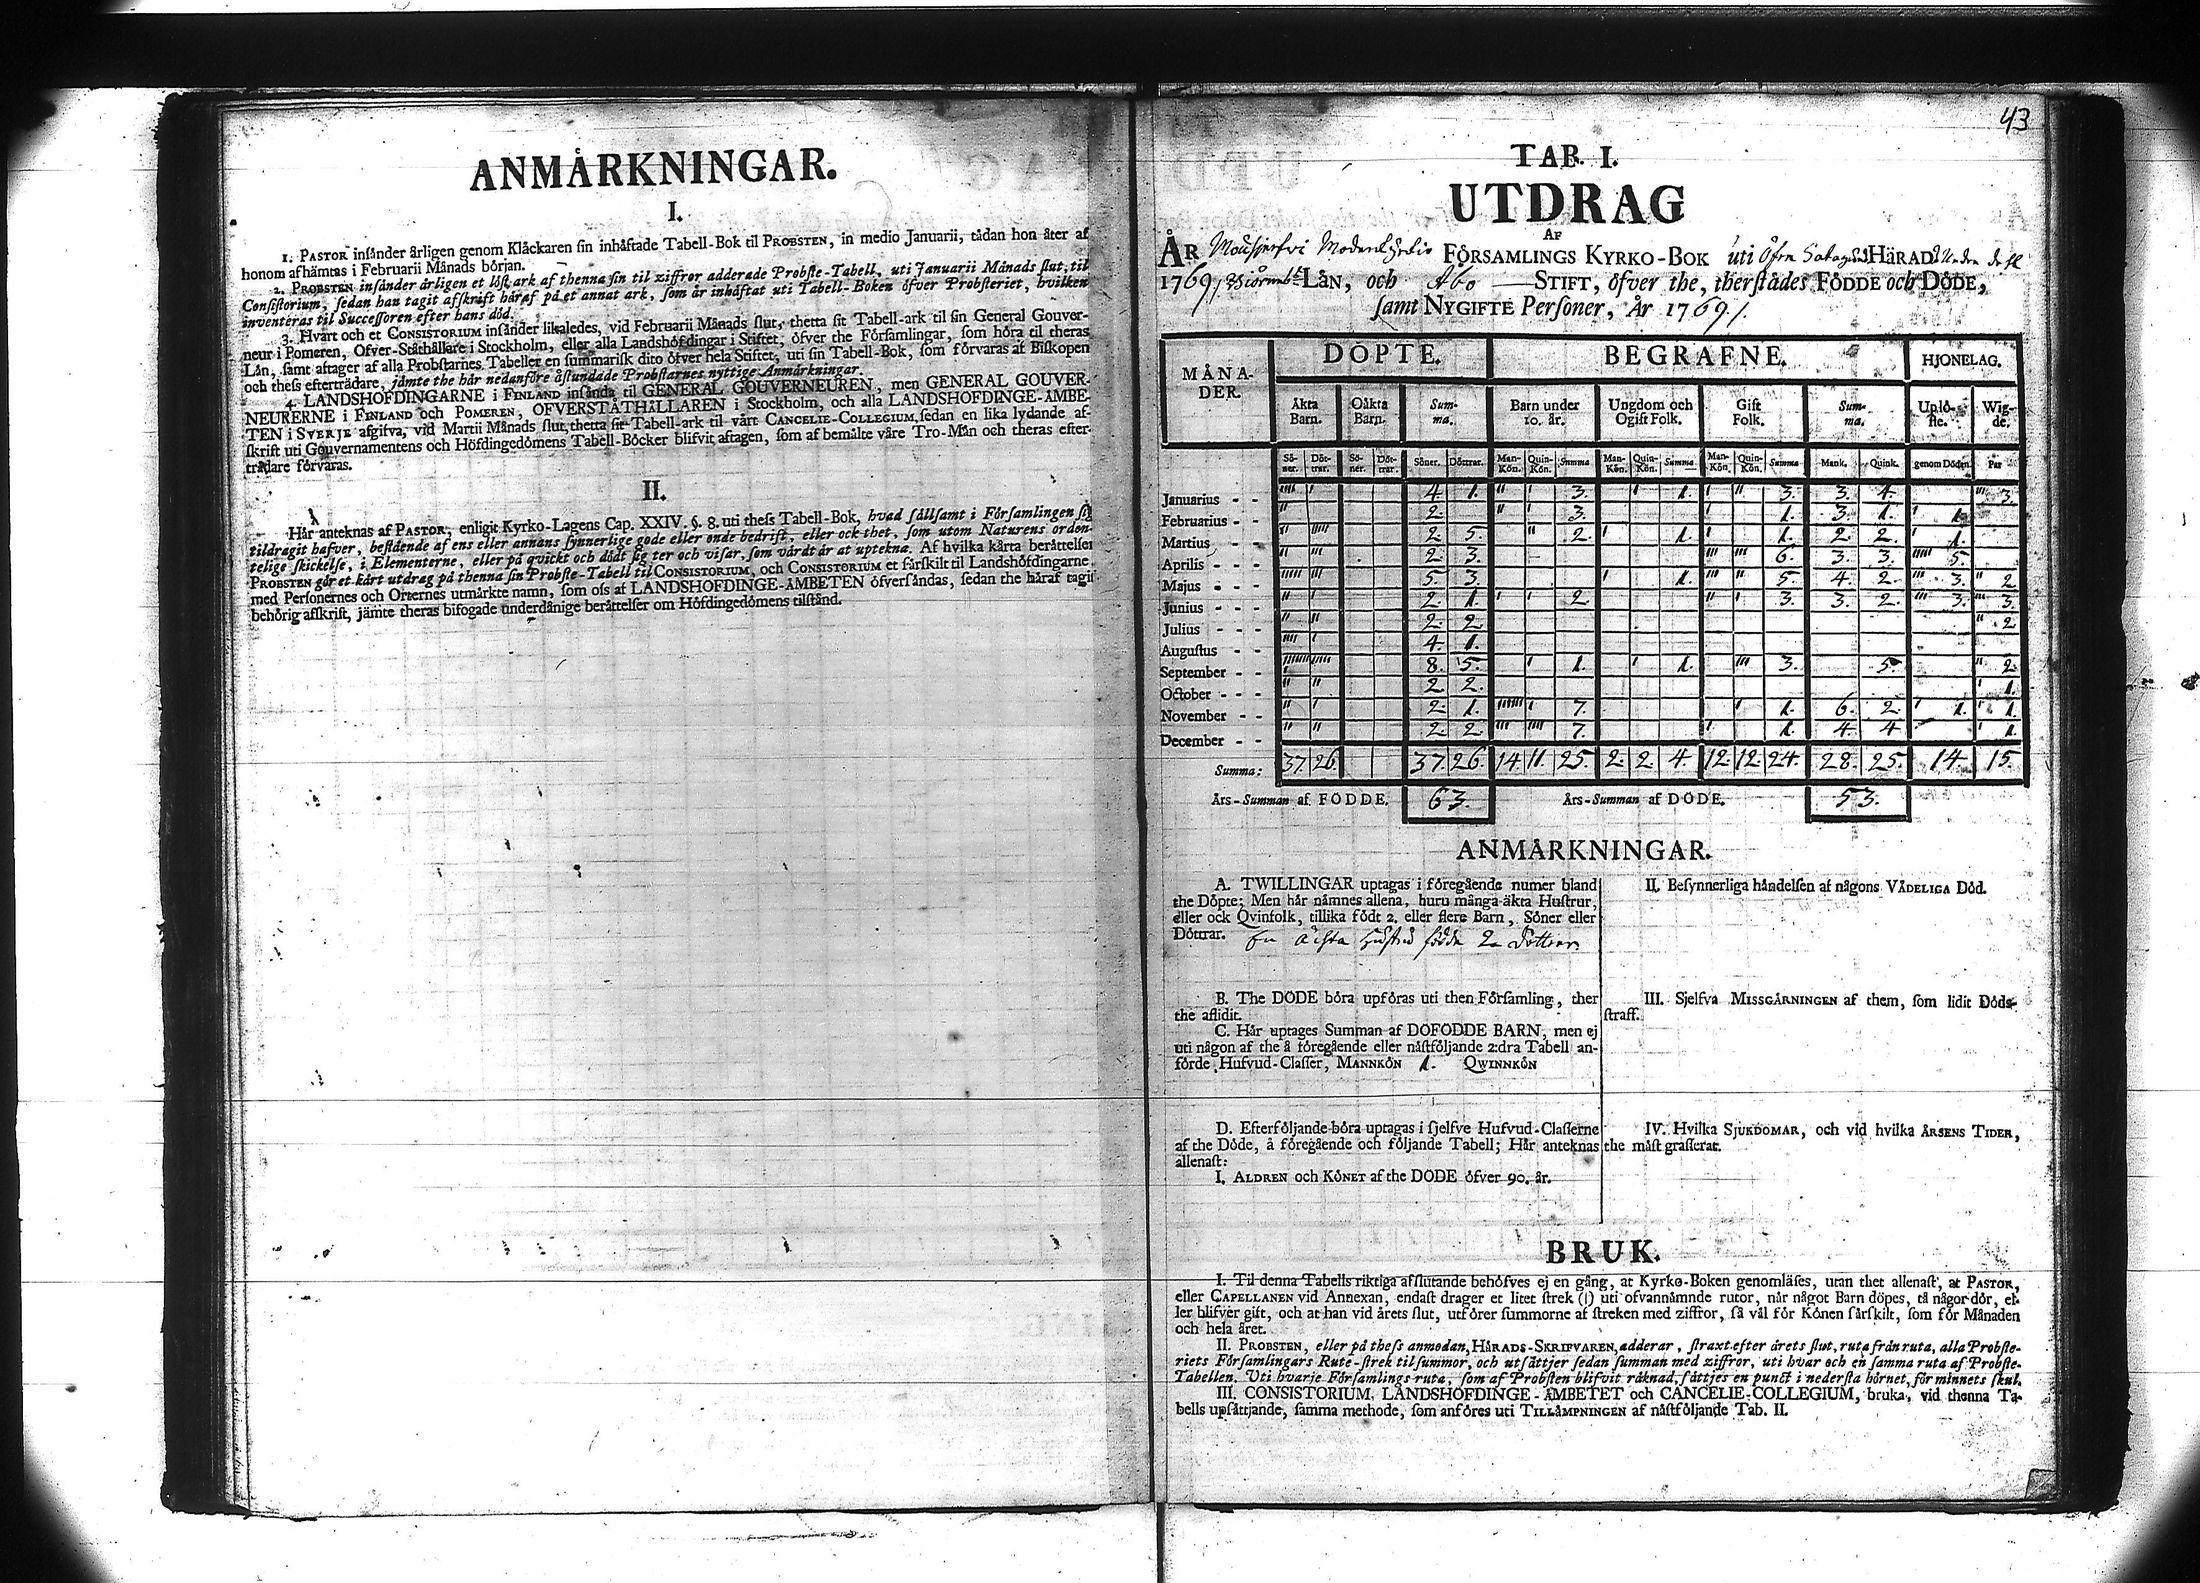 ANMÅRKNINGAR.
I.
1. PASTOR insånder årligen genom Klåckaren sin inhåftade Tabell-Bok til PROBSTEN, in medio Januarii, tådan hon åter af
honom afhämtas i Februarii Månads början.
2. PROBSTEN insånder årligen et löst ark af thenna sin til ziffror adderade Probste-Tabell, uti Januarii Månads slut, til
Consistorium, sedan han tagit afskrift håraf på et annat ark, som år inhåftat uti Tabell-Boken öfver Probsteriet, hvilken
inventeras til Successoren efter hans död.
3. Hvart och et CONSISTORIUM insånder likaledes, vid Februarii Månads slut, thetta sit Tabell-ark til sin General Gouver-
neur i Pomeren, Ofver-Ståthållare i Stockholm, eller alla Landshöfdingar i Stiftet, öfver the Församlingar, som höra til theras
Lån, samt aftager af alla Probstarnes Tabeller en summarisk dito öfver hela Stiftet, uti sin Tabell-Bok, som förvaras af Biskopen
och thess efterträdare, jämte the hår nedanföre åstundade Probstarnes nyttige Anmårkningar.
4. LANDSHÖFDINGARNE i FINLAND insånda til GENERAL GOUVERNEUREN, men GENERAL GOUVER-
NEURERNE i FINLAND och POMEREN, OFVERSTÅTHÅLLAREN i Stockholm, och alla LANDSHÖFDINGE-ÅMBE-
TEN i SVERJE afgifva, vid Martii Månads slut, thetta sit Tabell-ark til vårt CANCELIE-COLLEGIUM, sedan en lika lydande af-
skrift uti Gouvernamentens och Höfdingedömens Tabell-Böcker blifvit aftagen, som af bemälte våre Tro-Mån och theras efter-
trådare förvaras.
II.
Hår anteknas af PASTOR, enligit Kyrko-Lagens Cap. XXIV. §. 8. uti thess Tabell-Bok, hvad sållsamt i Församlingen sig
tildragit hafver, bestående af ens eller annans synnerlige gode eller onde bedrift, eller ock thet, som utom Naturens orden-
telige skickelse, i Elementerne, eller på qvickt och dödt sig ter och visar, som vårdt år at uptekna. Af hvilka kårta beråttelser
PROBSTEN gör et kårt utdrag på thenna sin Probste-Tabell til CONSISTORIUM, och CONSISTORIUM et särskilt til Landshöfdingarne
med Personernes och Orternes utmårkte namn, som oss af LANDSHÖFDINGE-ÅMBETEN öfversåndas, sedan the håraf tagit
behörig afskrift, jämte theras bifogade underdånige beråttelser om Höfdingedömens tilstånd.
43
TAB. I.
UTDRAG
AF
ÅR FÖRSAMLINGS KYRKO-BOK uti Öfre HÄRAD
1769, LÅN, och Åbo STIFT, öfver the, therstådes FÖDDE och DÖDE,
samt NYGIFTE Personer, År 1769.
MÅNADER. DÖPTE. BEGRAFNE. HJONELAG.
Äkta Barn. Oäkta Barn. Summa. Barn under 10. år. Ungdom och Ogift Folk. Gift Folk. Summa. Uplöste. Wigde.
Söner. Döttrar. Söner. Döttrar. Söner. Döttrar. Man-Kön. Quin-Kön. Summa Man-Kön. Quin-Kön. Summa Man-Kön. Quin-Kön. Summa Mank. Quink. genom Döden. Par
Januarius - - 4. 1. 3. 1. 3. 3. 4. 3.
Februarius - - 2. 3. 1. 3. 1. 1.
Martius - - 2 5. 2. 1. 1. 2. 2. 1.
Aprilis - - - 2. 3. 6. 3. 3. 5.
Majus - - - 5. 3. 1. 5. 4. 2. 3. 2
Junius - - - 2. 1. 2. 3. 3. 2. 3. 3.
Julius - - - 2. 2 2
Augustus - - 4. 1.
September - - 8. 5. 1. 1. 3. 5. 2
October - - - 2 2. 1.
November - - 2. 1. 7. 1. 6. 2. 1. 1.
December - - 2. 2 7. 1. 4 4 1.
Summa: 37 26 37. 26. 14 11. 25. 2. 2. 4 12. 12. 24. 28. 25. 14 15.
Års-Summan af FÖDDE. 63. Års-Summan af DÖDE. 53.
ANMÅRKNINGAR.
A. TWILLINGAR uptagas i föregående numer bland
the Döpte; Men hår nåmnes allena, huru många äkta Hustrur,
eller ock Qvinfolk, tillika födt 2. eller flere Barn, Söner eller
Döttrar. En ächta Hustru födde 2 Döttrar.
B. The DÖDE böra upföras uti then Församling, ther
the aflidit.
C. Hår uptages Summan af DÖFÖDDE BARN, men ej
uti någon af the å föregående eller nåstföljande 2:dra Tabell an-
förde Hufvud-Classer, MANNKÖN 1. QWINNKÖN
D. Efterföljande böra uptagas i sjelfve Hufvud-Classerne
af the Döde, å föregående och följande Tabell; Hår anteknas
allenast:
I. ALDREN och KÖNET af the DÖDE öfver 90. år.
II. Besynnerliga håndelsen af någons VÅDELIGA Död.
III. Sjelfva MISSGÅRNINGEN af them, som lidit Döds-
straff.
IV. Hvilka SJUKDOMAR, och vid hvilka ÅRSENS TIDER,
the måst grasserat.
BRUK.
I. Til denna Tabells riktiga afslutande behöfves ej en gång, at Kyrko-Boken genomläses, utan thet allenast, at PASTOR,
eller CAPELLANEN vid Annexan, endast drager et litet strek (|) uti ofvannåmnde rutor, når något Barn döpes, tå någor dör, el-
ler blifver gift, och at han vid årets slut, utförer summorne af streken med ziffror, så vål för Könen sårskilt, som för Månaden
och hela året.
II. PROBSTEN, eller på thess anmodan, HÅRADS-SKRIFVAREN, adderar, straxt efter årets slut, ruta från ruta, alla Probste-
riets Församlingars Rute-strek til summor, och utsåttjer sedan summan med ziffror, uti hvar och en samma ruta af Probste-
Tabellen. Uti hvarje Församlings ruta, som af Probsten blifvit råknad, såttjes en punct i nedersta hörnet, för minnets skul.
III. CONSISTORIUM, LANDSHÖFDINGE-ÅMBETET och CANCELIE-COLLEGIUM, bruka, vid thenna Ta-
bells upsåttjande, samma methode, som anföres uti TILLÅMPNINGEN af nåstföljande Tab. II.